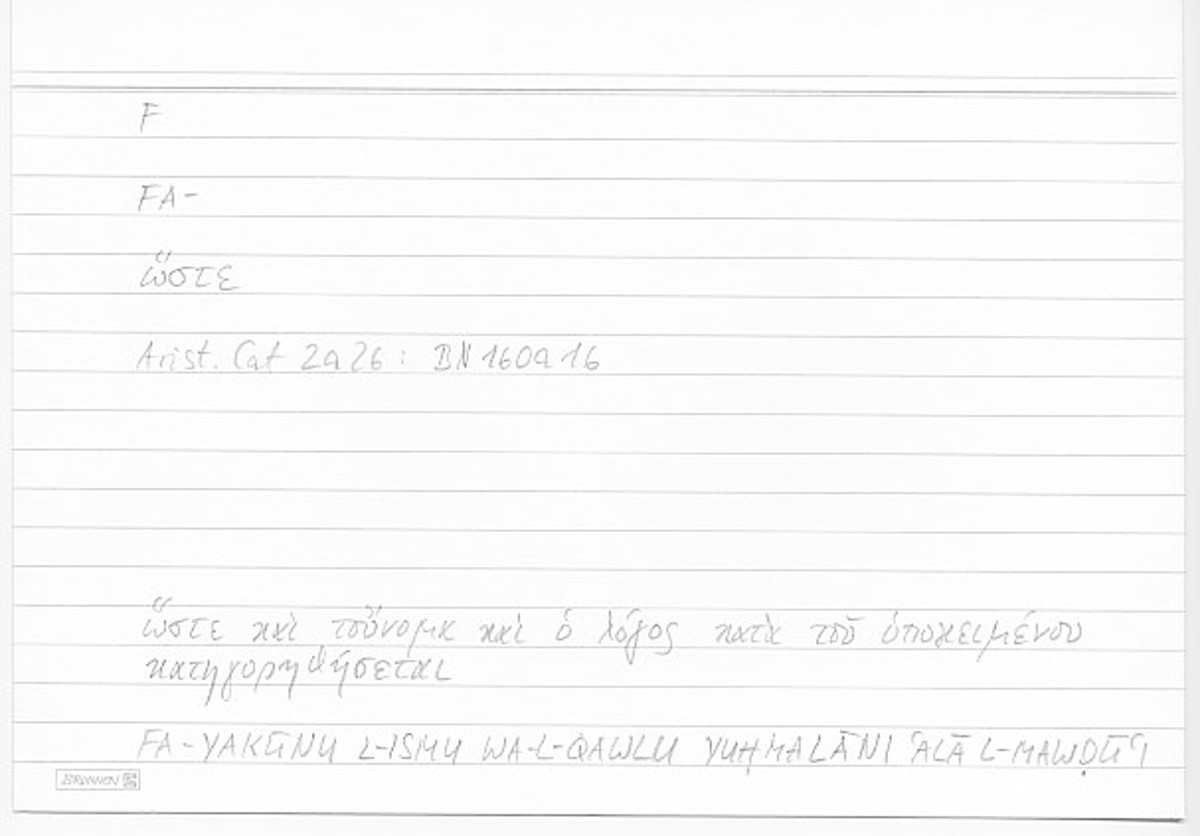 F
FA-
ὥστε
Arist. Cat 2a26: BN 160a16
ὥστε καὶ τοὔνομα καὶ ὁ λόγος κατὰ τοῦ ὑποκειμένου
κατηγορηθήσεται
FA-YAKŪNU L-ISMU WA-L-QAWLU YUḤMALĀNI ʿALĀ L-MAWḌŪʿI
BRUNNEN